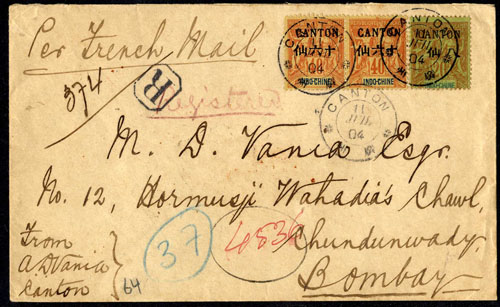 Per French Mail
CANTON
仙六十
40
INDO-CHINE
CANTON
仙六十
40
INDO-CHINE
CANTON
仙
INDO-CHINE
CANTON
04
CANTON
04
374
R
Registered
CANTON
11
JUIL
04
M. D. Vania Esqr.
No. 12, Hormusji Wahadia's Chawl,
Chundunwady
Bombay
From
A D Vania
Canton
64
37